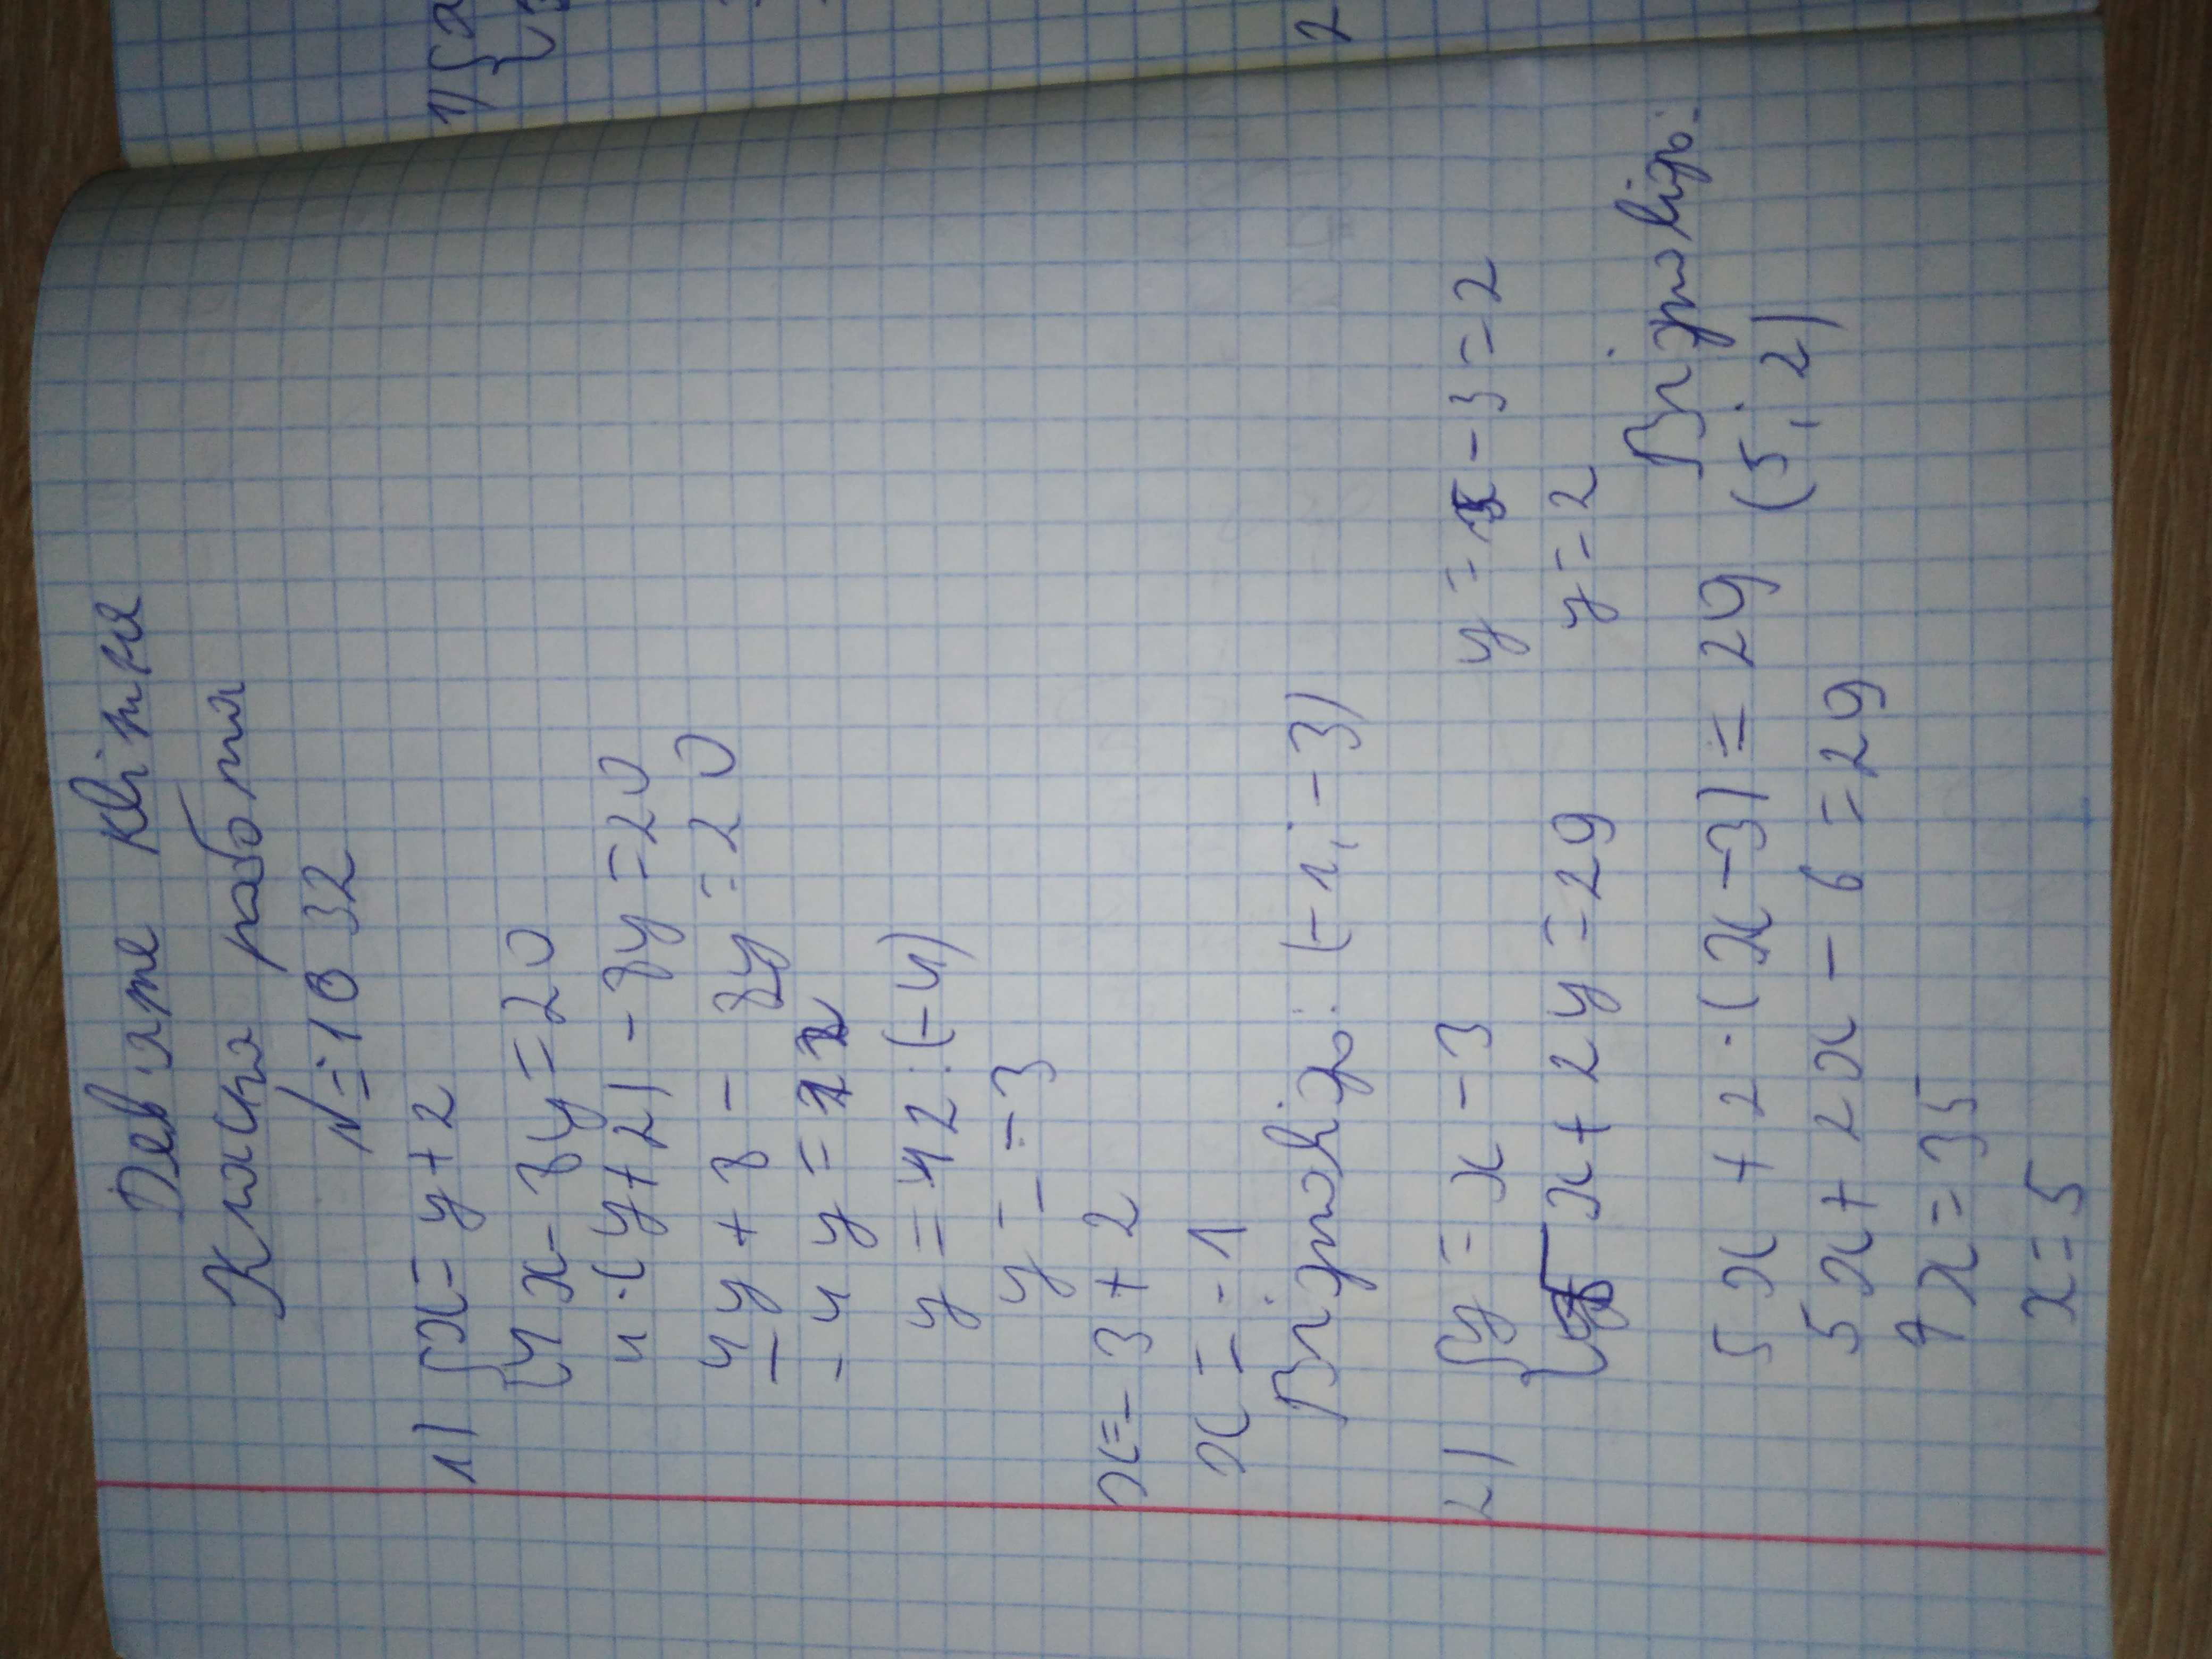 Дев'яте квітня
Класна робота
№ 1032
1) { x = y + 2
{ 4x - 8y = 20
4 · (y + 2) - 8y = 20
4y + 8 - 8y = 20
-4y = 12
y = 12 : (-4)
y = -3
x = -3 + 2
x = -1
Відповідь: (-1; -3)
2) { y = x - 3
{ 5x + 2y = 29
5x + 2 · (x - 3) = 29
5x + 2x - 6 = 29
7x = 35
x = 5
y = 5 - 3 = 2
y = 2
Відповідь:
(5; 2)
1) {
2